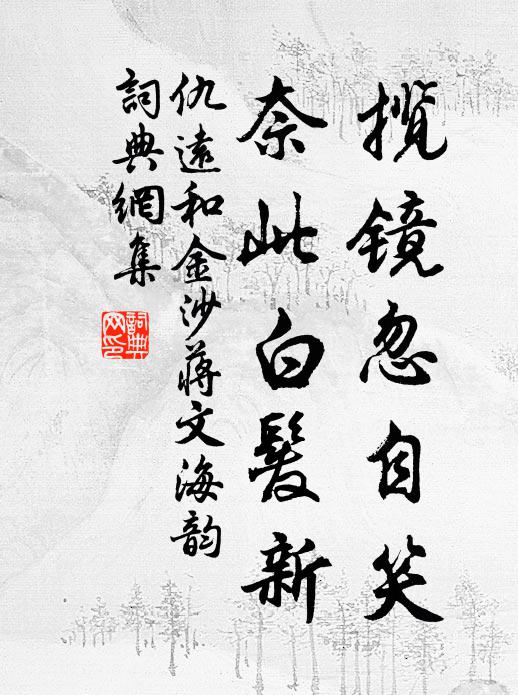 揽镜忽自笑
奈此白髮新
仇遠和金沙蔣文海韵
詞典網集
詞典網印